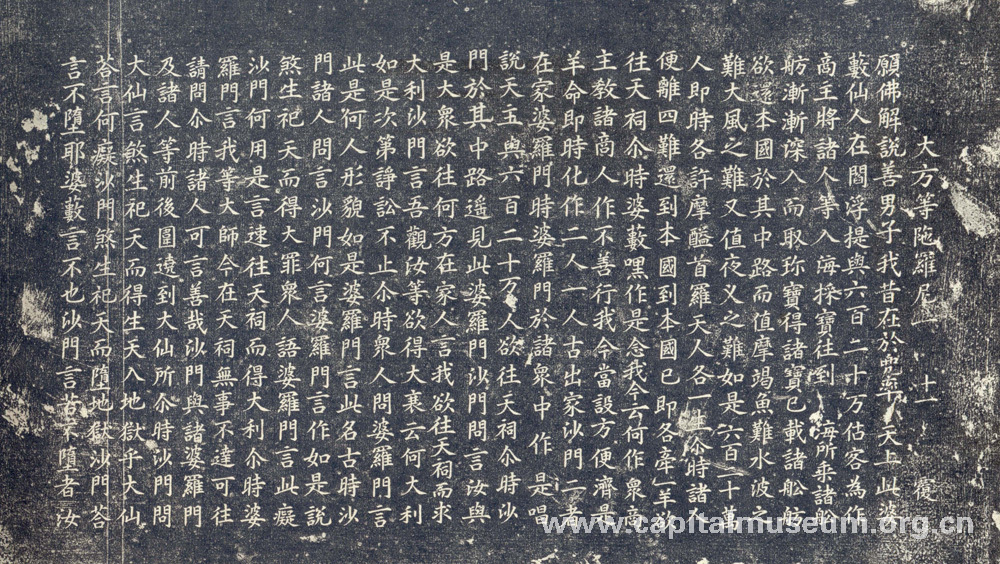 大方等陀羅尼一 十一 覆
願佛解說善男子我昔在於兜率天上此婆
藪仙人在閻浮提與六百二十万估客為作
高王將諸人等入海採寶往到海所乘諸舩
舫漸漸深入而取珎寶得諸寶已載諸舩舫
欲還本國於其中路而值摩竭魚難水波之
難大風之難又值夜义之難如是六百二十萬
人即時各許摩醯首羅天人各一生尒時諸人
便離四難還到本國到本國已即各牽一羊欲
往天祠尒時婆藪嘿作是念我今云何作眾商
主教諸商人作不善行我今當設方便濟是
羊命即時化作二人一人古出家沙門二者
在家婆羅門時婆羅門於諸衆中作是唱
說天玉與六百二十万人欲往天祠尒時沙
門於其中路遙見此婆羅門沙門問言汝與
是大衆欲往何方在家人言我欲往天祠而求
大利沙門言吾觀汝等欲得大衰云何大利
如是次第諍訟不止尒時衆人問婆羅門言
此是何人形貌如是婆羅門言此名古時沙
門諸人問言沙門何言婆羅門言作如是說
煞生祀天而得大罪衆人語婆羅門言此癡
沙門何用是言速往天祠而得大利尒時婆
羅門言我等大師今在天祠無事不達可往
請問尒時諸人可言善哉沙門與諸婆羅門
及諸人等前後圍遶到大仙所尒時沙門問
大仙言煞生祀天而得生天入地獄乎大仙
荅言何癡沙門煞生祀天而墮地獄沙門荅
言不墮耶婆藪言不也沙門言若不墮者汝
www.capitalmuseum.org.cn